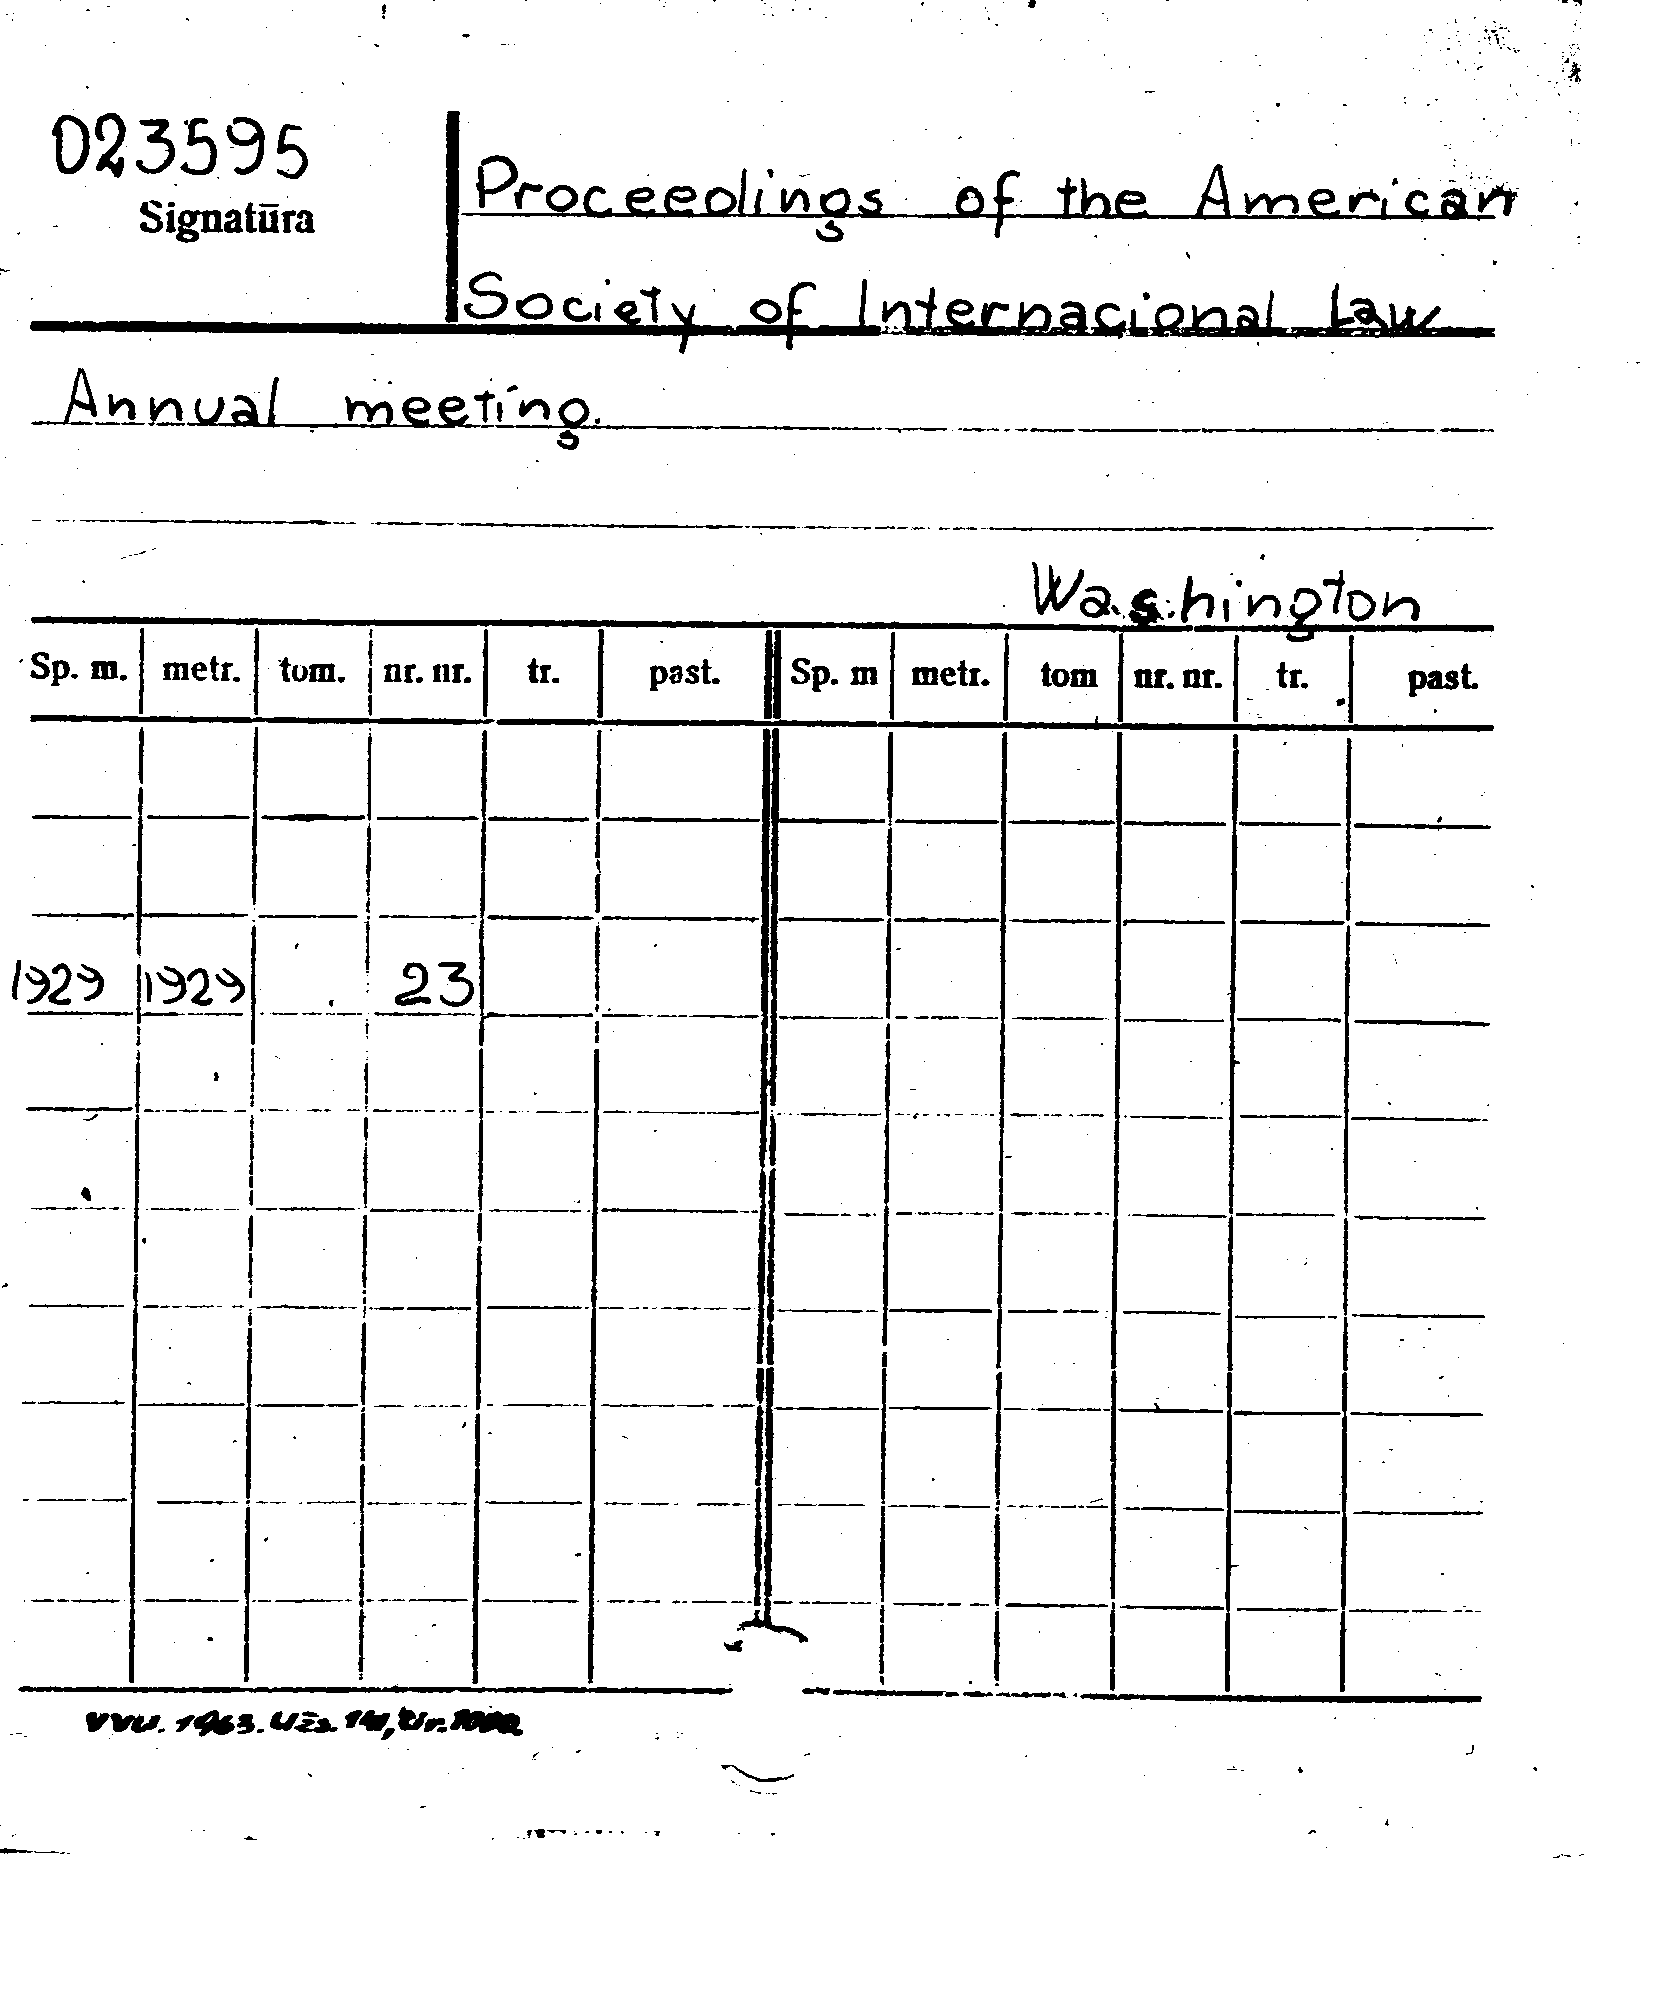 023595
Signatūra
Proceedings of the American
Society of Internacional Law
Annual meeting.
Washington
Sp. m. metr. tom. nr. nr. tr. past. Sp. m metr. tom nr. nr. tr. past.
1929 1929 23
VVU. 1963. Užs.